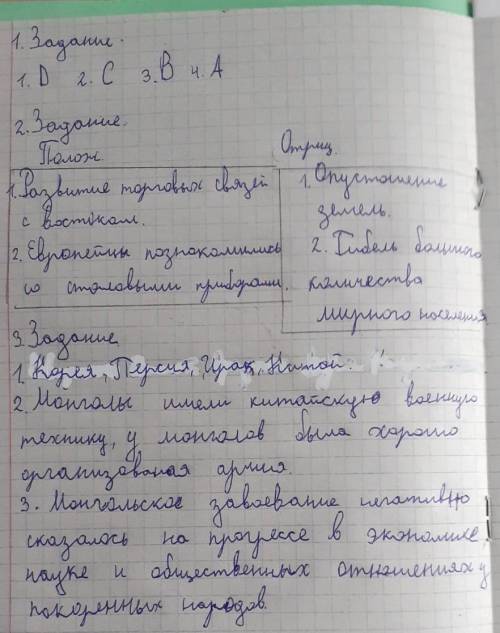 1. Задание.
1. D 2. C 3. B 4. A
2. Задание.
Полож. Отриц.
1. Развитие торговых связей
с востоком.
2. Европейцы познакомились
со столовыми приборами.
1. Опустошение
земель.
2. Гибель большого
количества
мирного населения
3. Задание
1. Корея, Персия, Ирак, Китай.
2. Монголы имели китайскую военную
технику, у монголов была хорошо
организованая армия.
3. Монгольское завоевание негативно
сказалось на прогрессе в экономике,
науке и общественных отношениях у
покоренных народов.